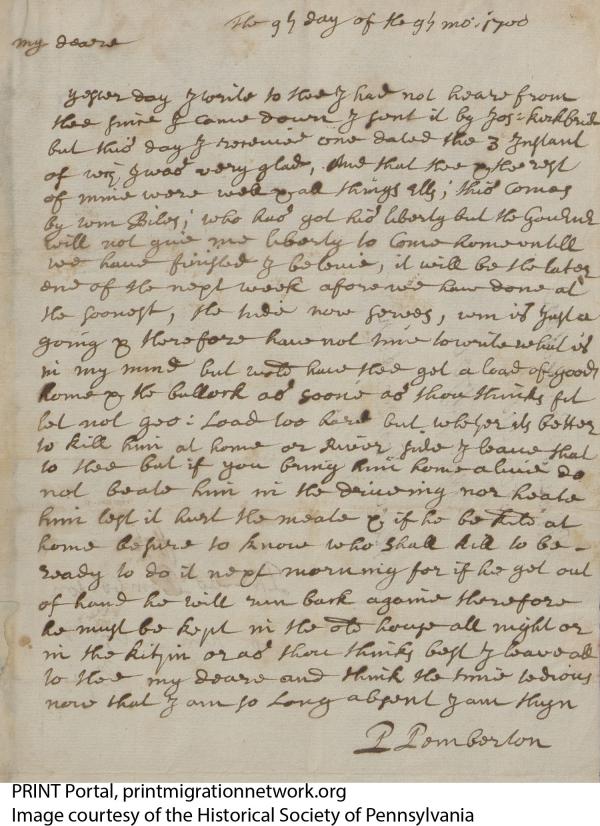 The 9th day of the 9th mo: 1700
my deare
yesterday I write to thee I had not heare from
thee sinse I came down I sent it by Jos: Kirkbride
but this day I received one dated the 3 Instant
of wch I was very glad, And that thee & the rest
of mine were well & all things else, this comes
by wm Biles, who has got his liberty but the Govenr
will not give me liberty to Come home untill
we have finished I beleive, it will be the later
end of the next week afore we have done at
the soonest, the tide now serves, wm is Just a
going & therefore have not time to write what is
in my mind but have thee get a load of goods
home & the bullock as soone as thou thinks fit
let not geo: Load too hard but whether its better
to kill him at home or River side I leave that
to thee but if you bring him home alive do
not beate him in the driveing nor heate
him lest it hurt the meate & if he be kild at
home besure to know who shall kill to be -
ready to do it next morning for if he get out
of hand he will run back againe therefore
he must be kept in the old house all night or
in the kitzin or as thou thinks best I leave all
to thee my deare and think the time tedious
now that I am so Long absent I am thyn
P Pemberton
PRINT Portal, printmigrationnetwork.org
Image courtesy of the Historical Society of Pennsylvania